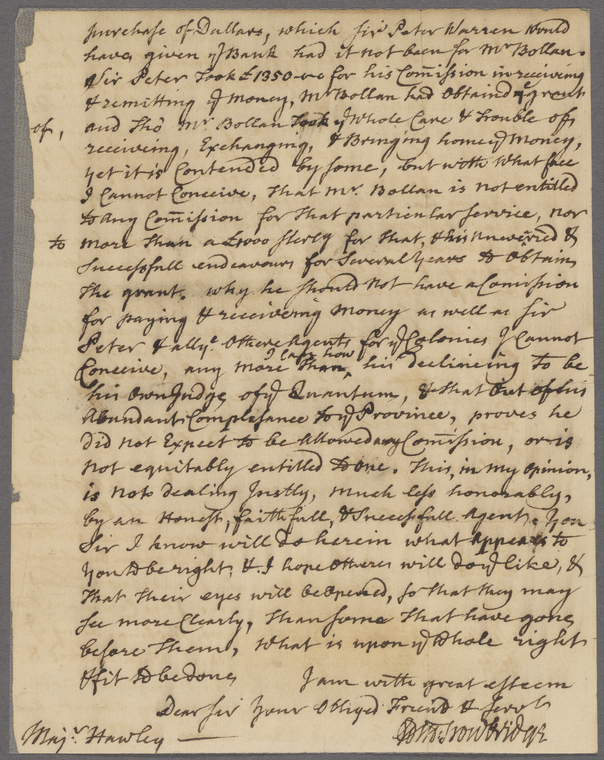 purchase of Dollars, which Sir Peter Warren would
have given ye Bank had it not been for Mr Bollan.
Sir Peter Took £1350 for his Com̃ission in receiving
& remitting ye Money, Mr Bollan had Obtaind ye grant
of, and Tho' Mr Bollan Took ye Whole Care & Trouble of
receiveing, Exchanging, & Bringing home ye Money,
yet it is Contended by some, but with What face
I Cannot Conceive, That Mr. Bollan is not entitled
to any Com̃ission for That particular Service, nor
to more Than a £1000 Sterlg for That, & his unwearied &
Successfull endeavours for Several Years to Obtain
The grant. Why he should not have a Com̃ission
for paying & receiveing Money as well as Sir
Peter & all ye Others Agents for ye Colonies I Cannot
Conceive, any more Than I can how his declineing to be
his Own Judge of ye Quantum, & that Out of his
Abundant Complesance to ye Province, proves he
did not Expect to be Allowed any Com̃ission, or is
not equitably entitled to one. This, in my Opinion,
is not dealing Justly, much less honorably,
by an Honest, faithfull, & Successfull Agent. You
Sir I know will do herein what Appears to
You to be right, & I hope Others will do ye like, &
That Their eyes will be Opened, so that they may
see more Clearly, Than some That have gone
before Them, What is upon ye Whole right
& fit to be done
I am with great esteem
Dear Sir Your Obliged Friend & Servt
Majr Hawley
Edm. Trowbridge